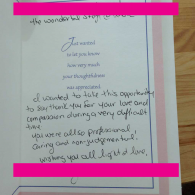 the wonderful staff
Just wanted
to let you know
how very much
your thoughtfulness
was appreciated.
I wanted to take this opportunity
to say thank you for your love and
compassion during a very difficult
time.
You were all so professional,
caring and non-judgemental!
wishing you all light & love,